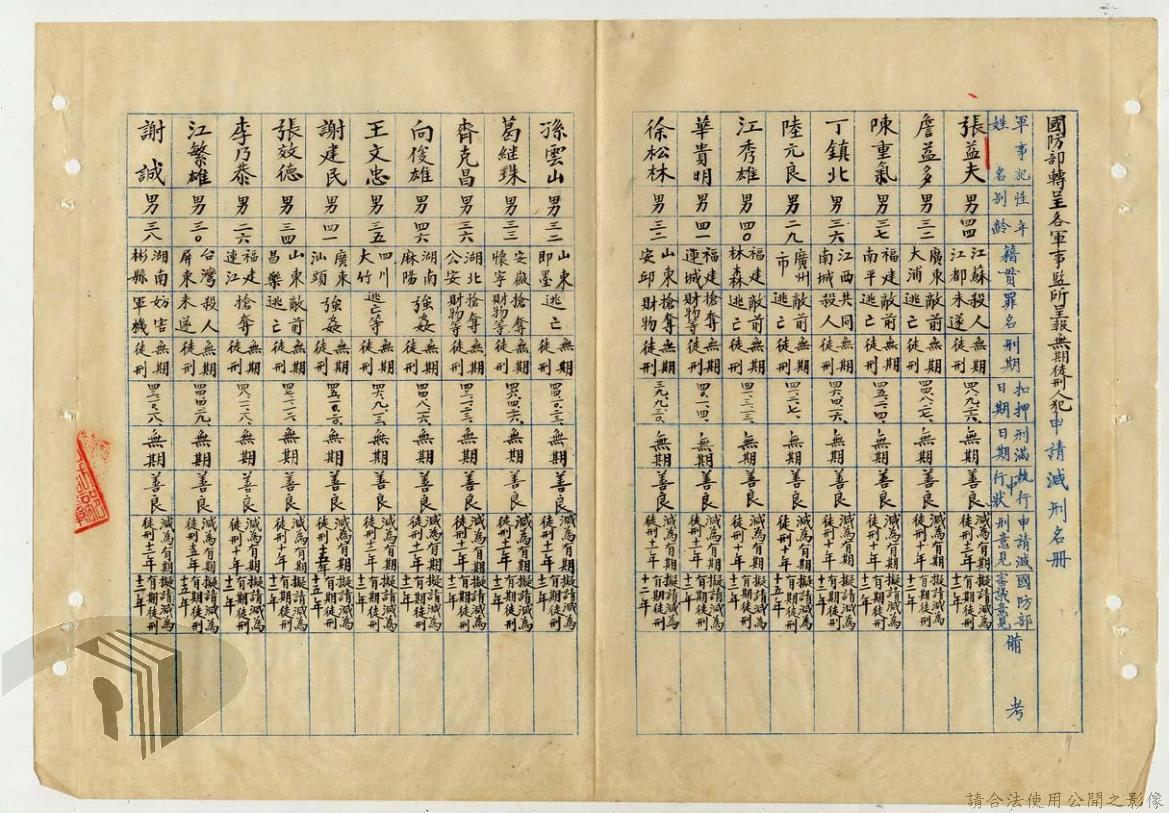 國防部轉呈各軍事監所呈報無期徒刑人犯申請減刑名冊
軍事犯姓名 性別 年齡 籍貫 罪名 刑期 扣押日期 刑滿日期 執行中行狀 申請減刑意見 國防部審議意見 備考
張益夫 男 四四 江蘇江都 殺人未遂 無期徒刑 無期 善良 減為有期徒刑十二年 擬請減為有期徒刑十二年
詹益多 男 三二 廣東大浦 敵前逃亡 無期徒刑 無期 善良 減為有期徒刑十年 擬請減為有期徒刑十二年
陳重氣 男 三七 福建南平 敵前逃亡 無期徒刑 無期 善良 減為有期徒刑十年 擬請減為有期徒刑十二年
丁鎮北 男 三六 江西南城 共同殺人 無期徒刑 無期 善良 減為有期徒刑十二年 擬請減為有期徒刑十二年
陸元良 男 二九 廣州市 敵前逃亡 無期徒刑 無期 善良 減為有期徒刑十年 擬請減為有期徒刑十五年
江秀雄 男 四0 福建林森 敵前逃亡 無期徒刑 無期 善良 減為有期徒刑十年 擬請減為有期徒刑十二年
華貴明 男 四一 福建蓮城 搶奪財物等 無期徒刑 無期 善良 減為有期徒刑十二年 擬請減為有期徒刑十二年
徐松林 男 三二 山東安邱 搶奪財物 無期徒刑 無期 善良 減為有期徒刑十二年 擬請減為有期徒刑十二年
孫雲山 男 三二 山東即墨 逃亡 無期徒刑 無期 善良 減為有期徒刑十二年 擬請減為有期徒刑十二年
葛継珠 男 三三 安徽懷寧 搶奪財物等 無期徒刑 無期 善良 減為有期徒刑十二年 擬請減為有期徒刑十二年
齊克昌 男 三六 湖北公安 搶奪財物等 無期徒刑 無期 善良 減為有期徒刑十二年 擬請減為有期徒刑十二年
向俊雄 男 四六 湖南麻陽 強姦 無期徒刑 無期 善良 減為有期徒刑十年 擬請減為有期徒刑十二年
王文忠 男 三五 四川大竹 逃亡等 無期徒刑 無期 善良 減為有期徒刑十二年 擬請減為有期徒刑十二年
謝建民 男 四一 廣東汕頭 強姦 無期徒刑 無期 善良 減為有期徒刑十五年 擬請減為有期徒刑十五年
張效德 男 三四 山東昌樂 敵前逃亡 無期徒刑 無期 善良 減為有期徒刑十年 擬請減為有期徒刑十二年
李乃恭 男 二六 福建連江 搶奪 無期徒刑 無期 善良 減為有期徒刑十年 擬請減為有期徒刑十二年
江繁雄 男 三0 台灣屏東 殺人未遂 無期徒刑 無期 善良 減為有期徒刑五年 擬請減為有期徒刑十二年
謝誠 男 三八 湖南彬縣 妨害軍機 無期徒刑 無期 善良 減為有期徒刑十二年 擬請減為有期徒刑十二年
請合法使用公開之影像